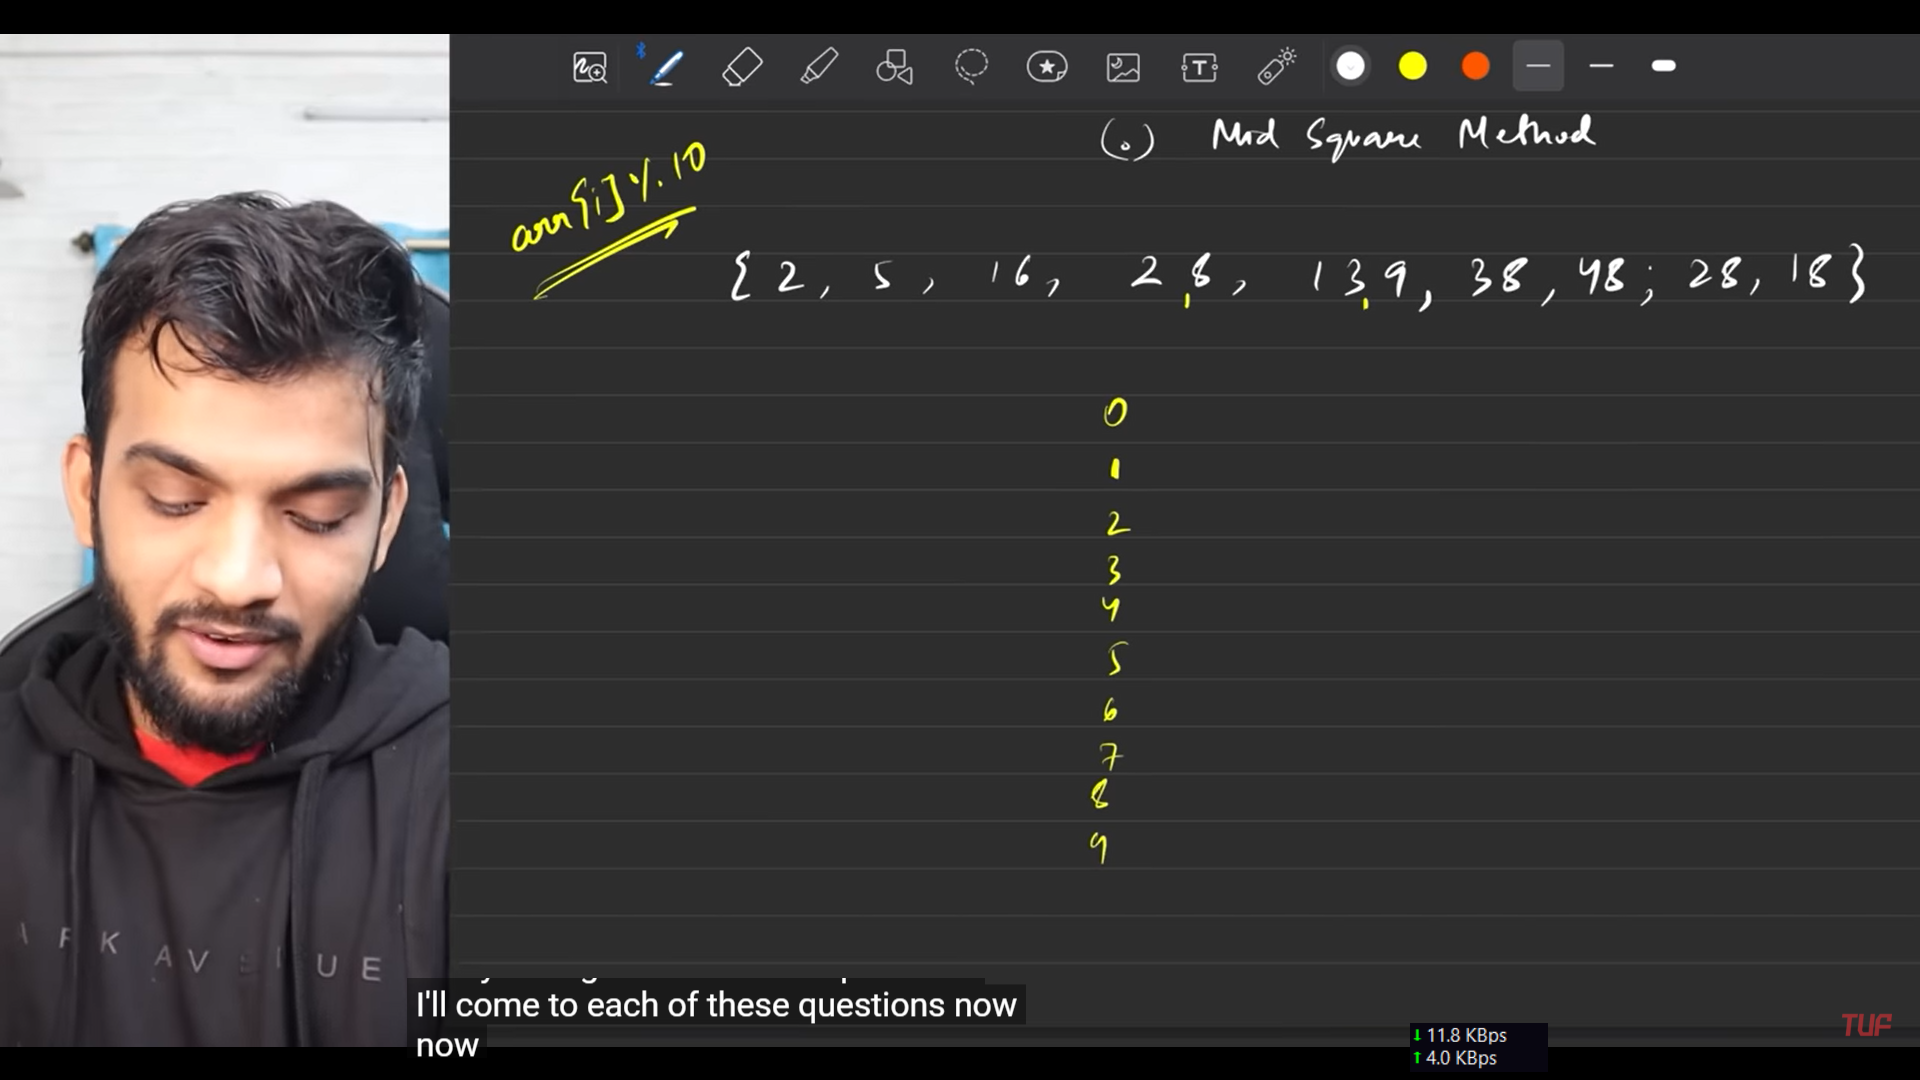 (.) Mid Square Method
arr[i] % 10
{2, 5, 16, 28, 139, 38, 48; 28, 18}
0
1
2
3
4
5
6
7
8
9
I'll come to each of these questions now
now
TUF
↓ 11.8 KBps
↑ 4.0 KBps